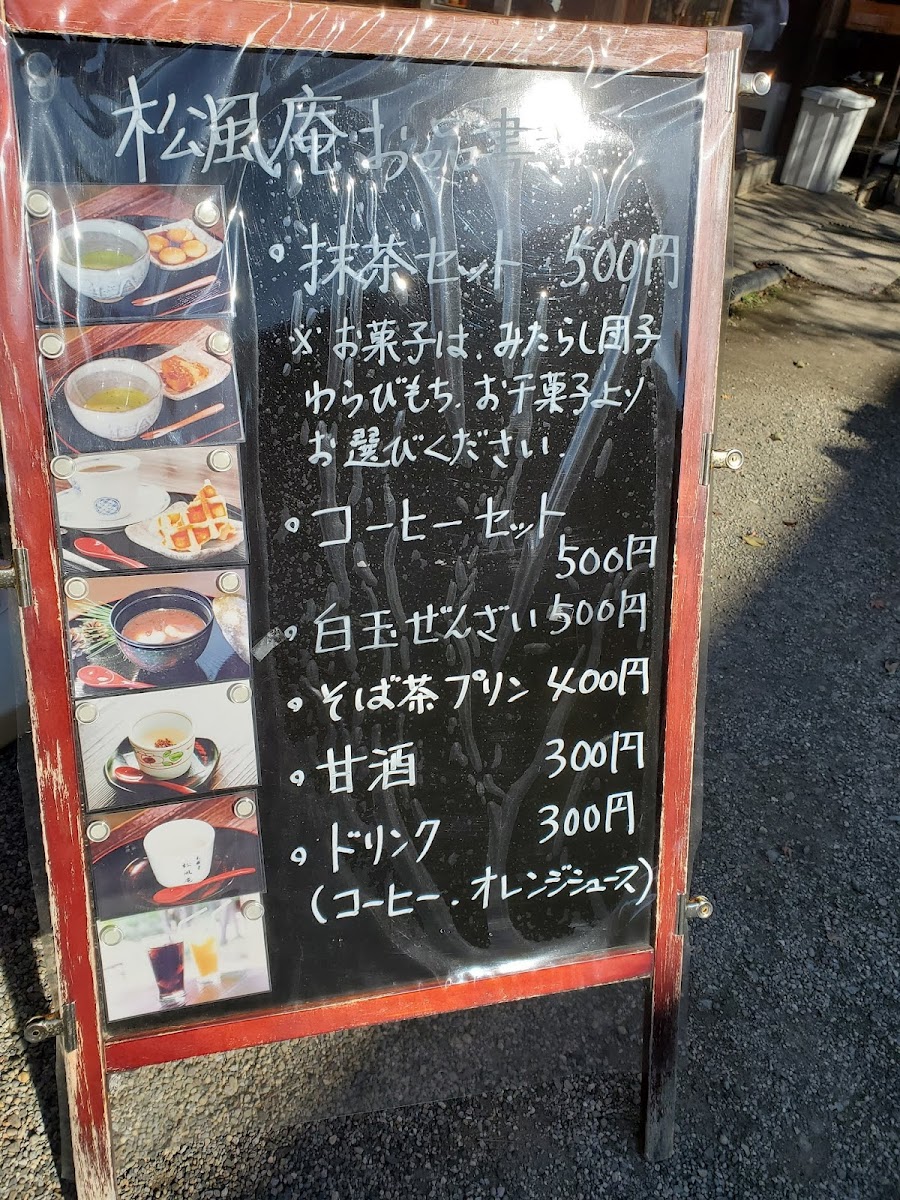 松風庵 お品書
・抹茶セット 500円
※お菓子は、みたらし団子
わらびもち、お干菓子より
お選びください.
・コーヒーセット
500円
・白玉ぜんざい 500円
・そば茶プリン 400円
・甘酒 300円
・ドリンク 300円
(コーヒー、オレンジジュース)